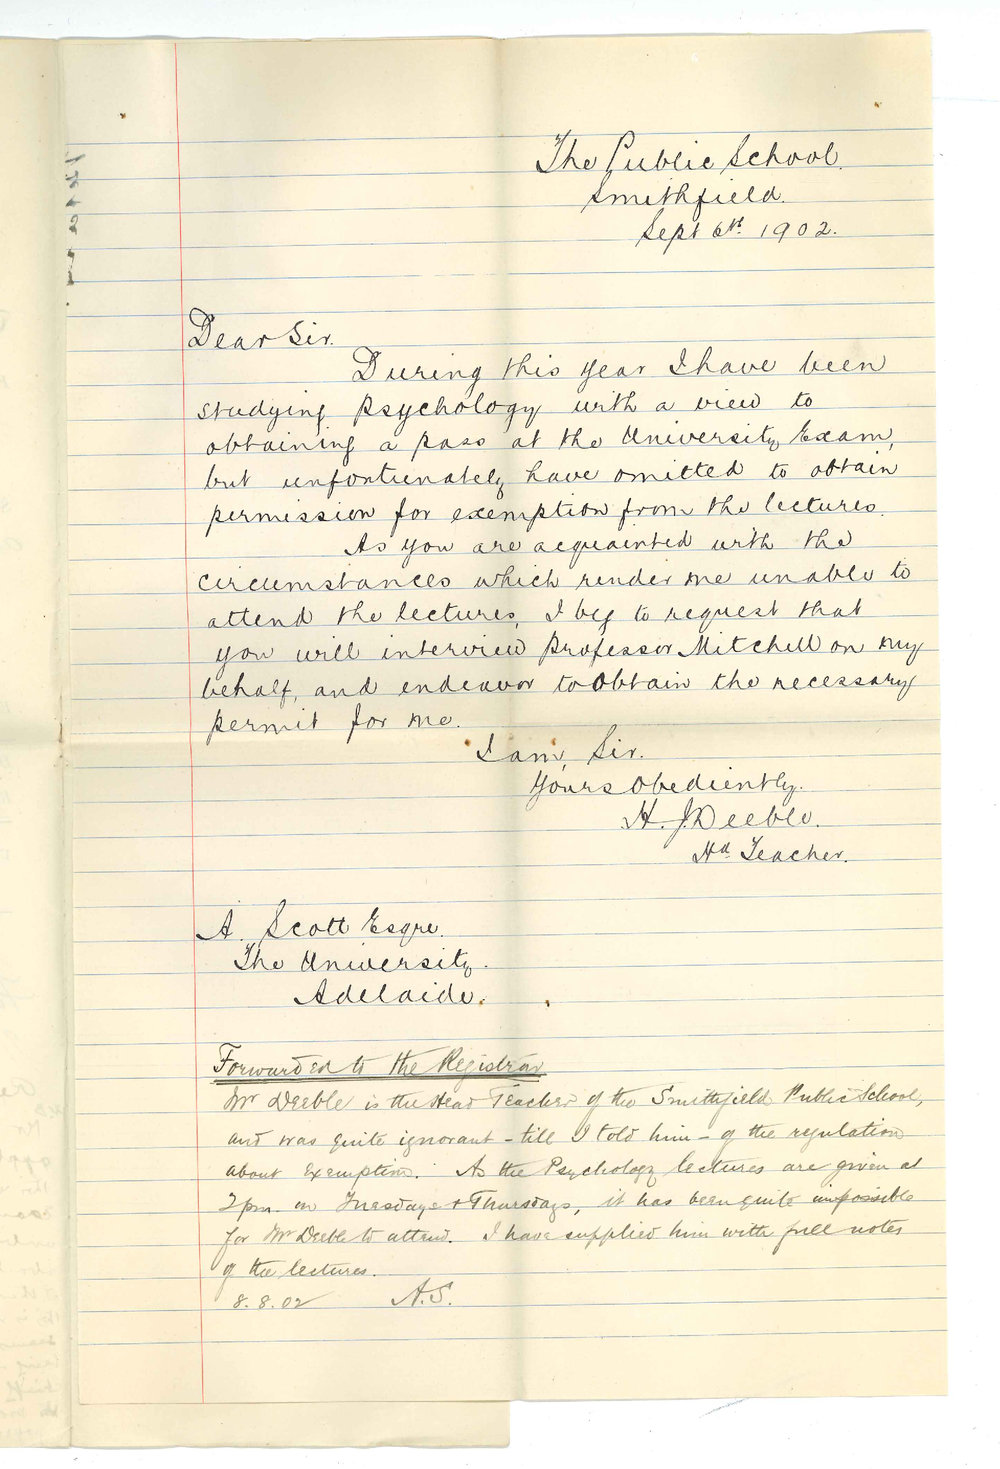 The Public School.
Smithfield.
Sept 6th. 1902.
Dear Sir.
During this year I have been
studying Psychology with a view to
obtaining a pass at the University Exam,
but unfortunately have omitted to obtain
permission for exemption from the lectures.
As you are acquainted with the
circumstances which render me unable to
attend the lectures, I beg to request that
you will interview Professor Mitchell on my
behalf, and endeavor to obtain the necessary
permit for me.
I am, Sir.
Yours Obediently.
H. J. Deeble.
Hd. Teacher.
A. Scott Esqre.
The University.
Adelaide.
Forwarded to the Registrar
Mr Deeble is the Head Teacher of the Smithfield Public School,
and was quite ignorant - till I told him - of the regulation
about exemption. As the Psychology lectures are given at
2 pm. on Tuesdays & Thursdays, it has been quite impossible
for Mr Deeble to attend. I have supplied him with full notes
of the lectures.
8.8.02 A.S.